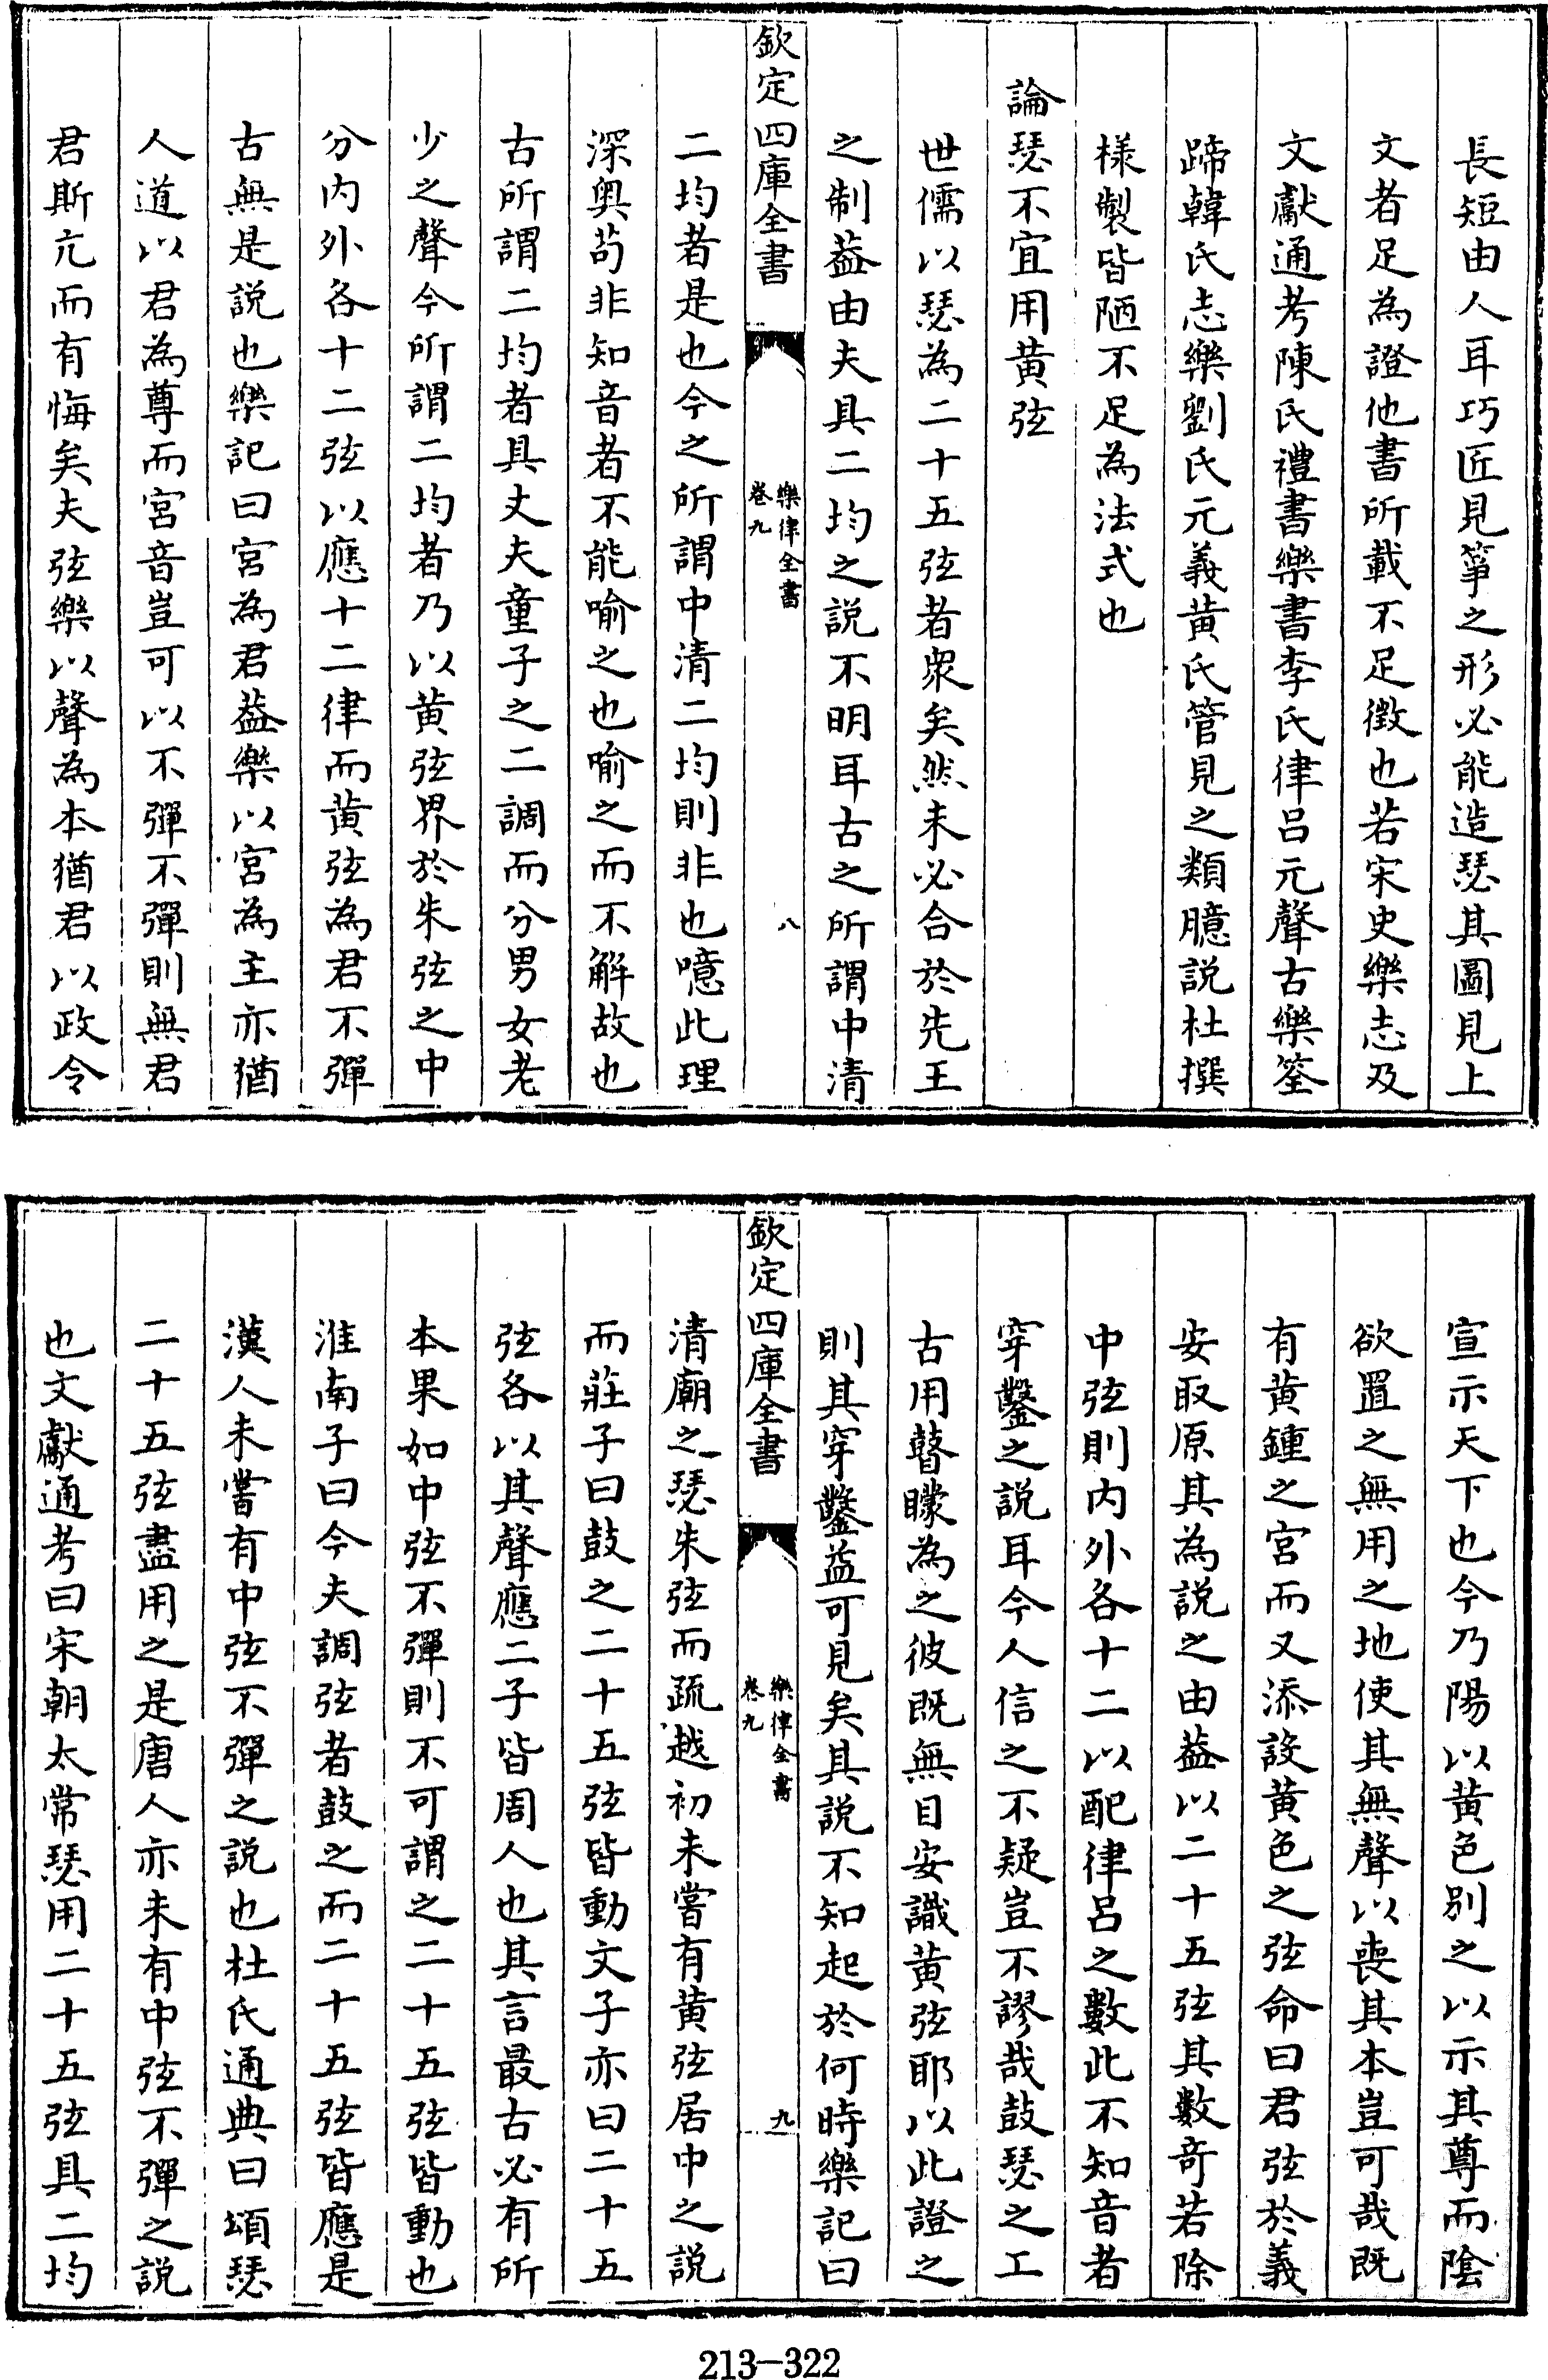 長短由人耳巧匠見箏之形必能造瑟其圖見上
文者足為證他書所載不足徴也若宋史樂志及
文獻通考陳氏禮書樂書李氏律呂元聲古樂筌
蹄韓氏志樂劉氏元義黄氏管見之類臆説杜撰
様製皆陋不足為法式也
論瑟不宜用黄弦
世儒以瑟為二十五弦者衆矣然未必合於先王
之制葢由夫具二均之説不明耳古之所謂中清
欽定四庫全書
樂律全書
卷九
八
二均者是也今之所謂中清二均則非也噫此理
深奥茍非知音者不能喻之也喻之而不解故也
古所謂二均者具丈夫童子之二調而分男女老
少之聲今所謂二均者乃以黄弦界於朱弦之中
分内外各十二弦以應十二律而黄弦為君不彈
古無是説也樂記曰宮為君葢樂以宮為主亦猶
人道以君為尊而宮音豈可以不彈不彈則無君
君斯亢而有悔矣夫弦樂以聲為本猶君以政令
宣示天下也今乃陽以黄色别之以示其尊而陰
欲置之無用之地使其無聲以喪其本豈可哉既
有黄鍾之宮而又添設黄色之弦命曰君弦於義
安取原其為説之由葢以二十五弦其數奇若除
中弦則内外各十二以配律呂之數此不知音者
穿鑿之説耳今人信之不疑豈不謬哉鼓瑟之工
古用瞽矇為之彼既無目安識黄弦耶以此證之
則其穿鑿益可見矣其説不知起於何時樂記曰
欽定四庫全書
樂律全書
卷九
九
清廟之瑟朱弦而疏越初未嘗有黄弦居中之説
而莊子曰鼓之二十五弦皆動文子亦曰二十五
弦各以其聲應二子皆周人也其言最古必有所
本果如中弦不彈則不可謂之二十五弦皆動也
淮南子曰今夫調弦者鼓之而二十五弦皆應是
漢人未嘗有中弦不彈之説也杜氏通典曰頌瑟
二十五弦盡用之是唐人亦未有中弦不彈之説
也文獻通考曰宋朝太常瑟用二十五弦具二均
213-322